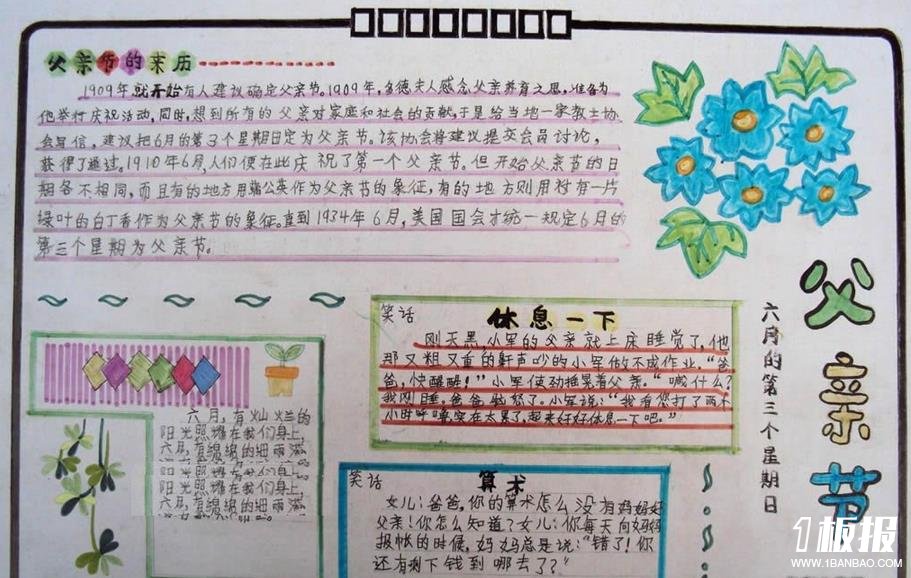 父亲节的来历
1909年就开始有人建议确定父亲节。1909年,多德夫人感念父亲养育之恩,准备为
他举行庆祝活动,同时,想到所有的父亲对家庭和社会的贡献,于是给当地一家教士协
会写信,建议把6月的第3个星期日定为父亲节。该协会将建议提交会员讨论,
获得了通过。1910年6月,人们便在此庆祝了第一个父亲节。但开始父亲节的日
期各不相同,而且有的地方用蒲公英作为父亲节的象征,有的地方则用衬有一片
绿叶的白丁香作为父亲节的象征。直到1934年6月,美国国会才统一规定6月的
第三个星期为父亲节。
父亲节
六月的第三个星期日
笑话
休息一下
刚天黑,小军的父亲就上床睡觉了,他
那又粗又重的鼾声吵的小军做不成作业。“爸
爸,快醒醒!”小军使劲摇晃着父亲。“喊什么?
我刚睡。爸爸
怒了。小军说:“我看您打了两个
小时呼噜,实在太累了,起来好好休息一下吧。”
六月,有灿烂的
阳光照耀在我们身上,
六月,有绵绵的细雨滋
阳光照耀在我们身上,
阳光照耀在我们身上,
六月,有绵绵的细雨滋
笑话
算术
女儿:爸爸,你的算术怎么没有妈妈好
父亲!你怎么知道?女儿:你每天向妈妈
报帐的时候,妈妈总是说:“错了!你
还有剩下钱到哪去了?”
1板报
WWW.1BANBAO.COM